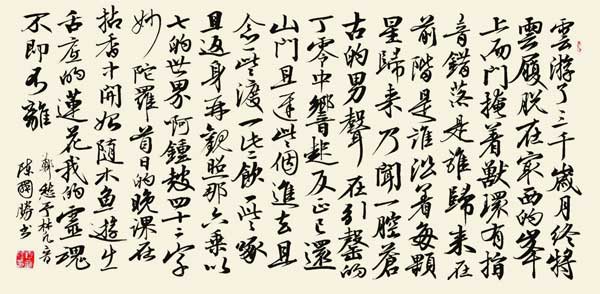 雲游了三千歲月終將
雲履脫在最西的峯
上而門掩着獸環有指
音錯落是誰歸來在
前階是誰沿着每顆
星歸來乃聞一腔蒼
古的男聲在引罄的
丁零中響起反正已還
山門且遲些個進去且
念一些渡一些飲一些啄
且返身再觀照那六乘以
七的世界啊鐘鼓四十二字
妙陀羅首日的晚課在
拈香中開始隨木魚遊出
舌底的蓮花我的靈魂
不即不離
鄭愁予梵音
陳國勝書